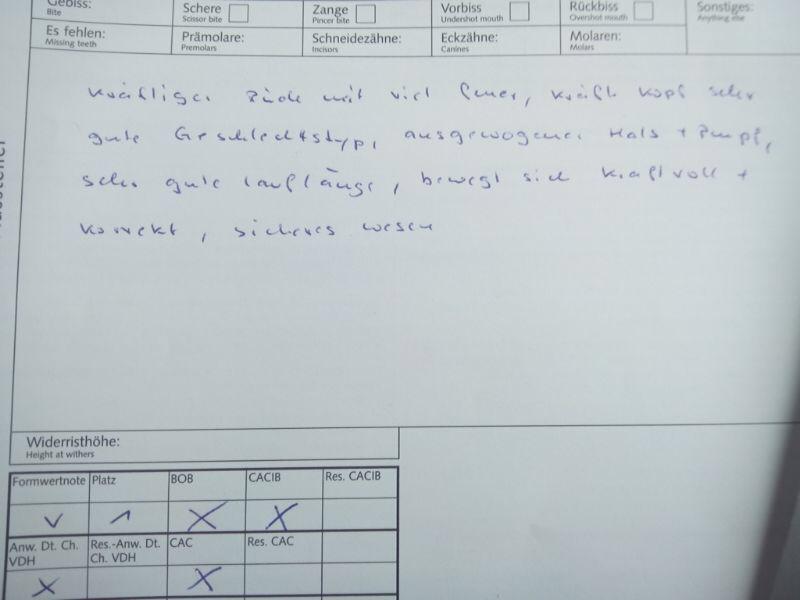 Gebiss: Schere Zange Vorbiss Rückbiss Sonstiges:
Bite Scissor bite Pincer bite Undershot mouth Overshot mouth Anything else
Es fehlen: Prämolare: Schneidezähne: Eckzähne: Molaren:
Missing teeth Premolars Incisors Canines Molars
kräftiger Rüde mit viel feuer, kräft. Kopf sehr
gute Geschlechtstyp, ausgewogener Hals + Rumpf,
sehr gute Lauflänge, bewegt sich kraftvoll +
korrekt, sicheres wesen
Aussteller
Widerristhöhe:
Height at withers
Formwertnote Platz BOB CACIB Res. CACIB
V 1 X X
Anw. Dt. Ch. VDH Res.-Anw. Dt. Ch. VDH CAC Res. CAC
X X